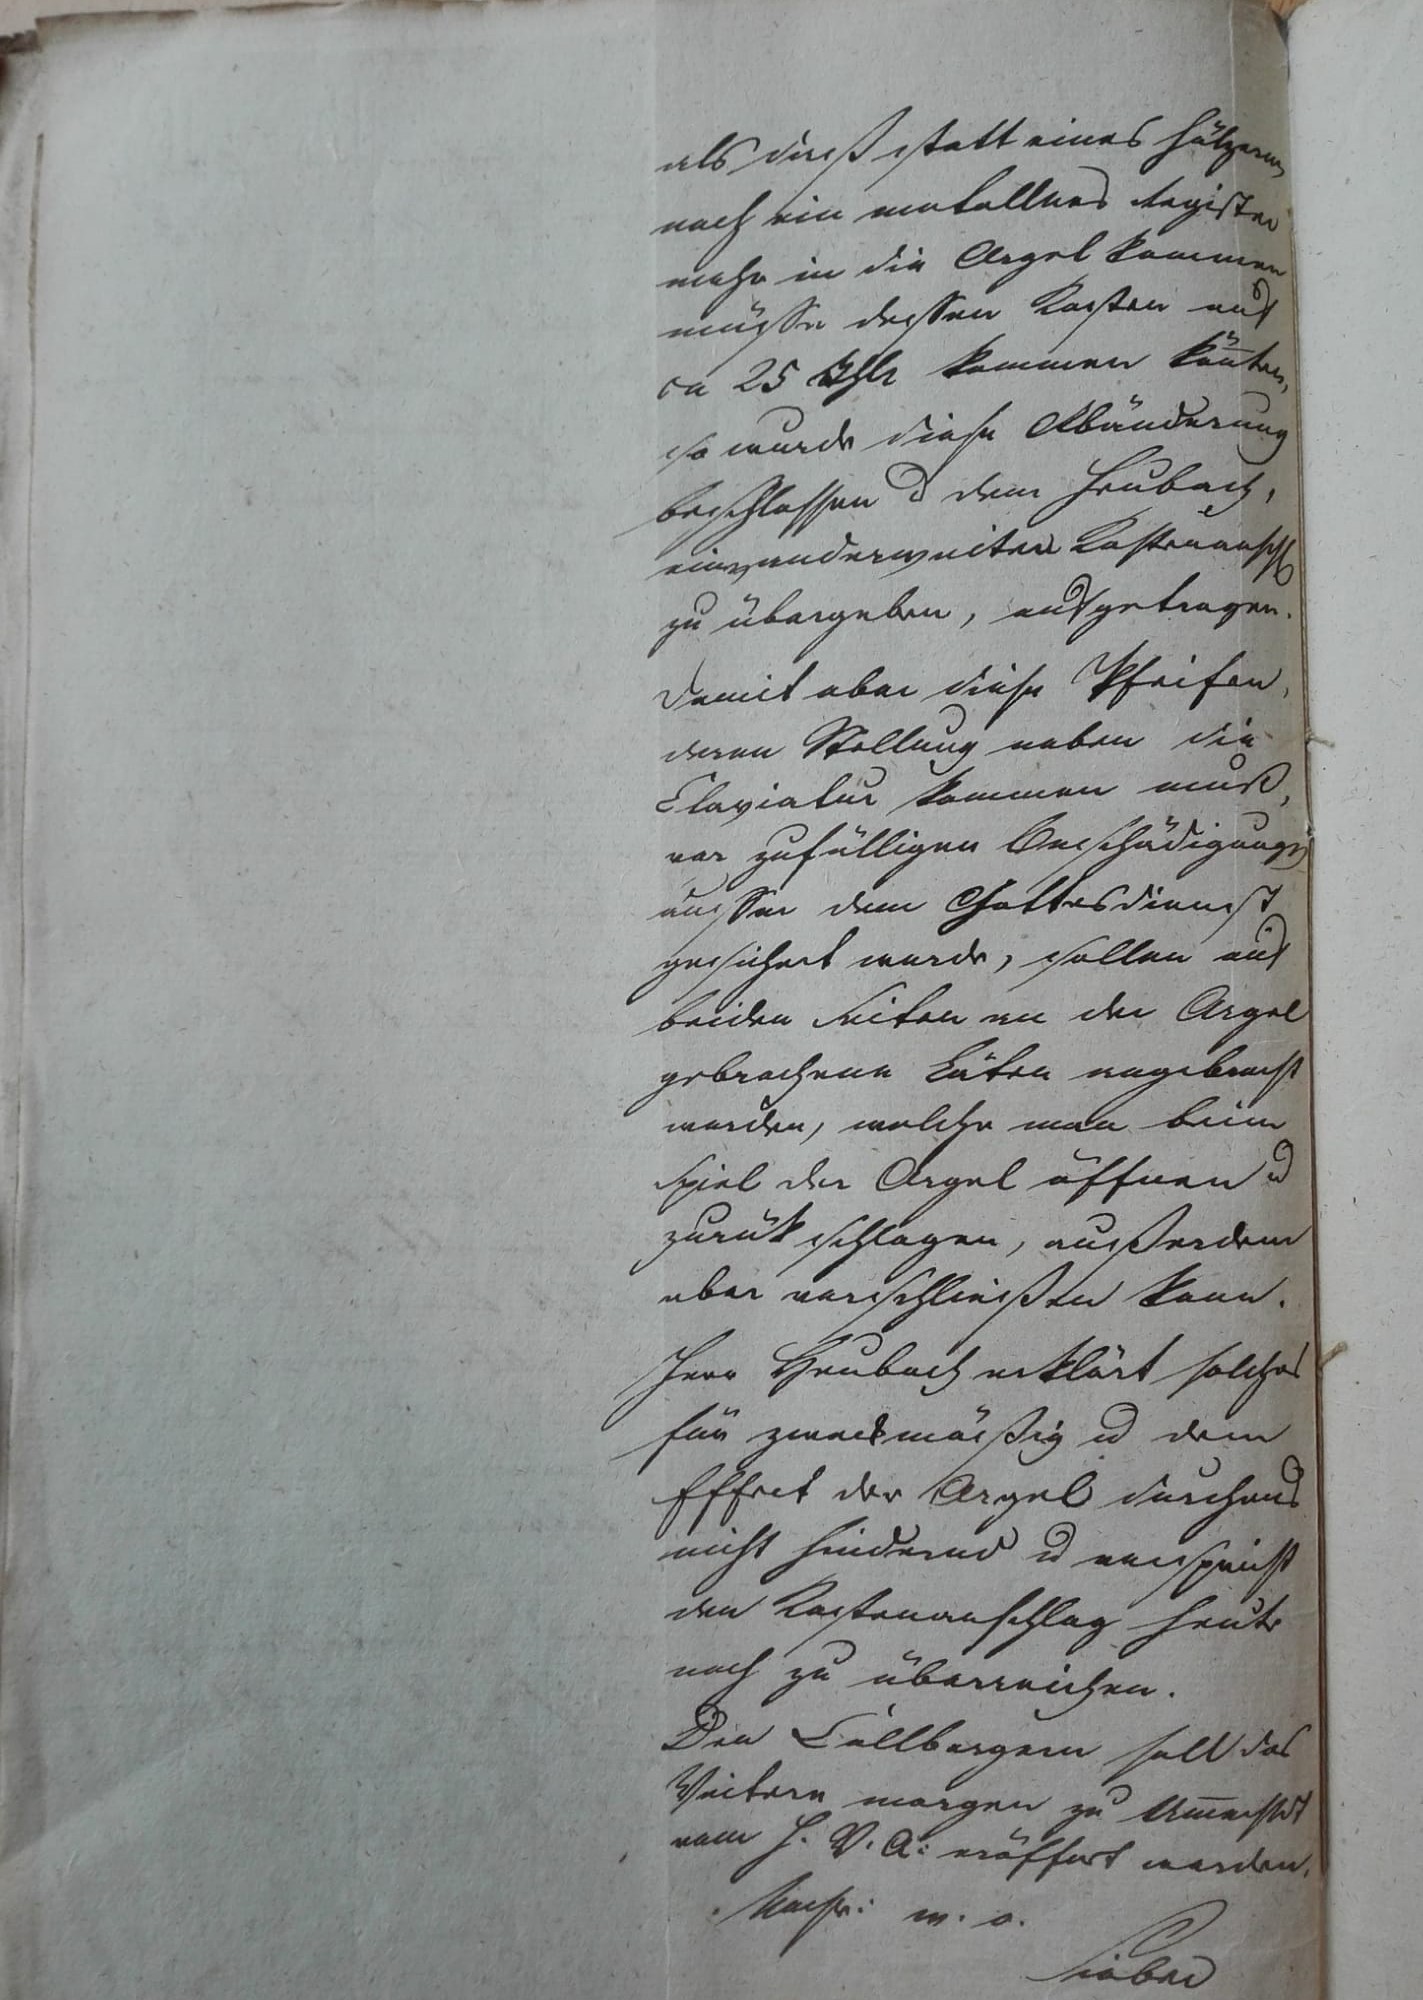 als dieß statt eines hölzernen
noch ein metallnes Register
mehr in die Orgel kommen
müsse dessen Kosten auf
ca 25 Thlr kommen könnten,
so wurde diese Abänderung
beschlossen u dem Heubach,
einen anderweiten Kostenanschl
zu übergeben, aufgetragen.
Damit aber diese Pfeifen,
deren Stellung neben die
Claviatur kommen muß,
vor zufälligen Beschädigungen
ausser dem Gottesdienst
gesichert werde, sollen auf
beiden Seiten an der Orgel
gebrochene Läden angebracht
werden, welche man beim
Spiel der Orgel öffnen u
zurük schlagen, außerdem
aber verschließen kann.
Herr Heubach erklärt solches
für zweckmäßig u dem
Effect der Orgel durchaus
nicht hindernd u verspricht
den Kostenanschlag heute
noch zu überreichen.
Den soll das
Weitere morgen zu
vom H. V. A: eröffnet werden.
Nachr: w. o.